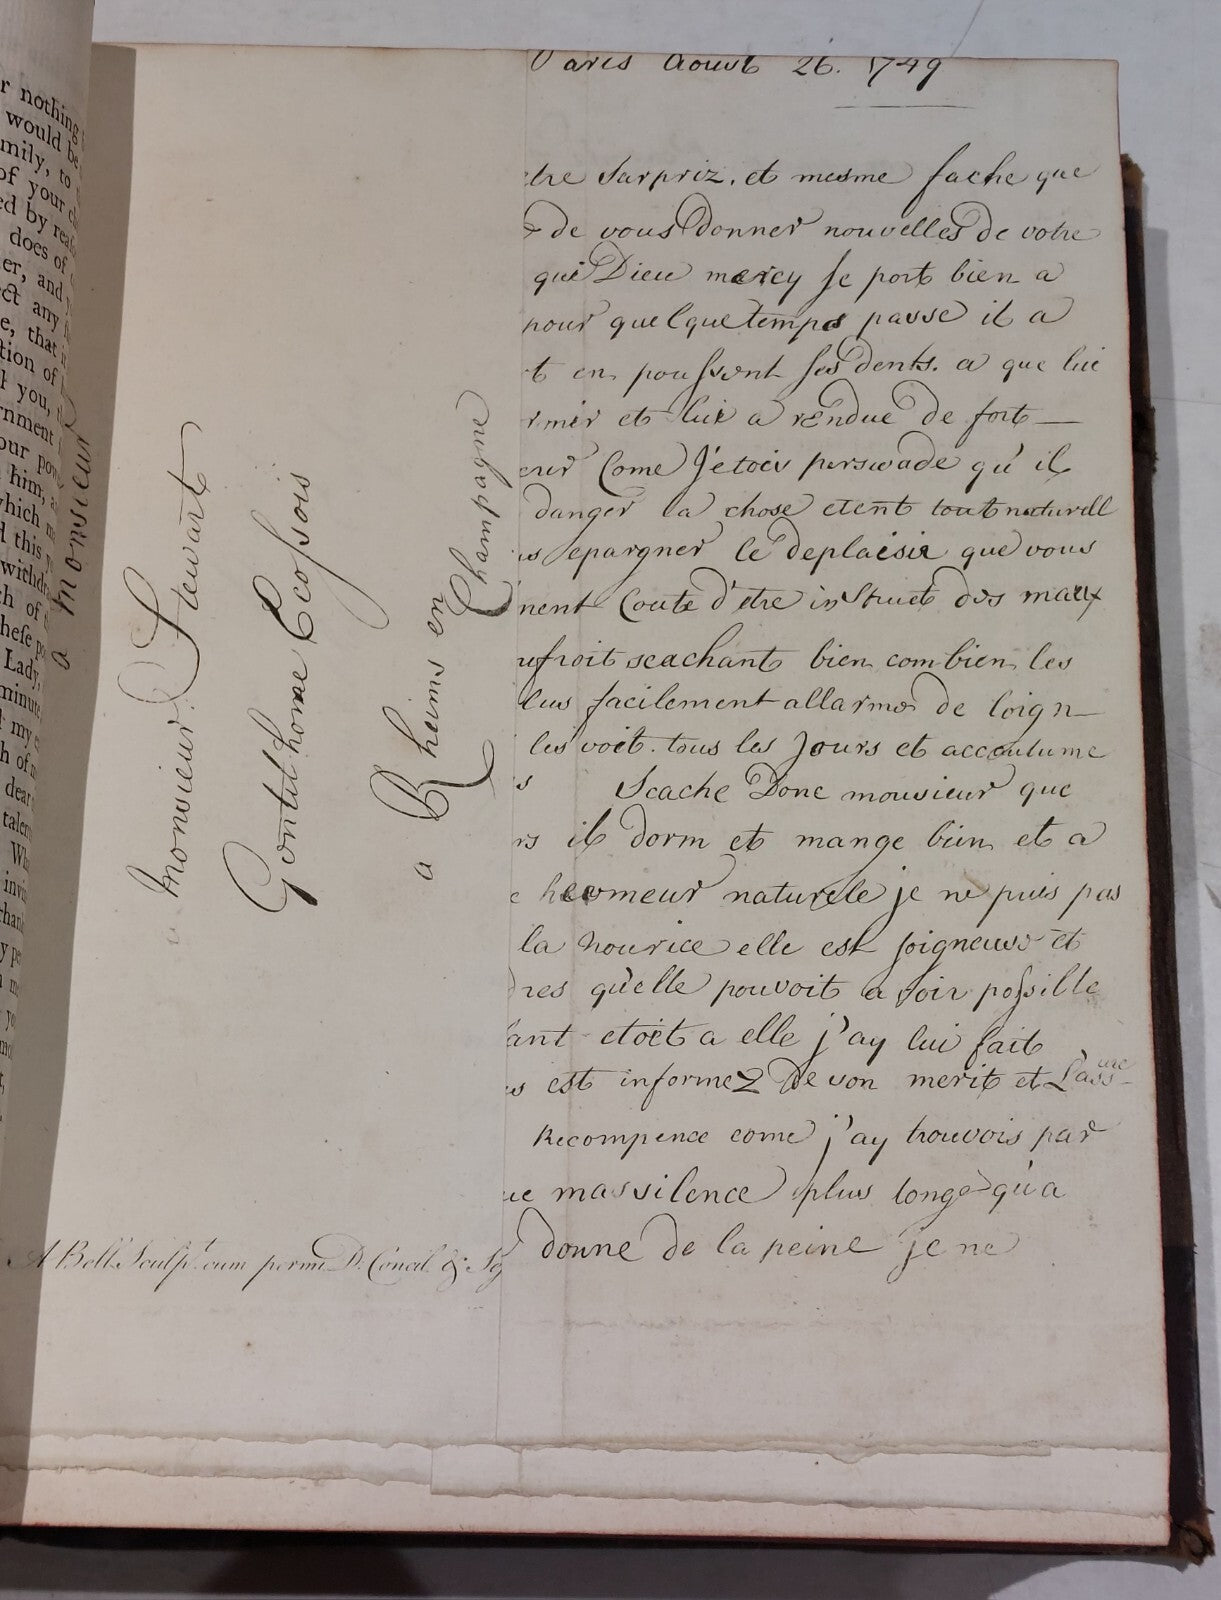 r nothing
would be
mily, to
of your
ed by
does of
er, and
ect any
e, that
tion of
l you,
rnment
our
him,
which
d this
withd
ch of
hese
Lady,
minute
d my
h of
dear
talen
Wh
invi
a Monsieur
a Monsieur Stewart
Gentilhome Ecossois
a Rheims en
Champagne
A Bell Sculpt. cum permi. D. Concil. & Sg
Paris Aoust 26. 1749
etre Surpriz, et mesme fache que
de vous Donner nouvelles De votre
qui Dieu mercy se port bien a
pour quelque temps passe il a
t en poussent ses Dents. a que lui
rmir et lui a rendue De fort —
eur Come J'etois perswade qu'il
danger la chose etent tout naturell
us epargner le deplaisir que vous
nent Coute D'etre instruct des maux
ufroit scachant bien combien les
lus facilement allarmes De loign
les voit tous les Jours et accoutume
s Scache Donc monsieur que
rs il dorm et mange bien et a
e heumeur naturele je ne puis pas
la nourice elle est soigneuse et
dres qu'elle pouvoit avoir possille
ant etoit a elle j'ay lui fait
us est informez De son merit et L'assure
Recompence come j'ay trouvois par
ue mas silence plus longe qu'a
donne de la peine je ne